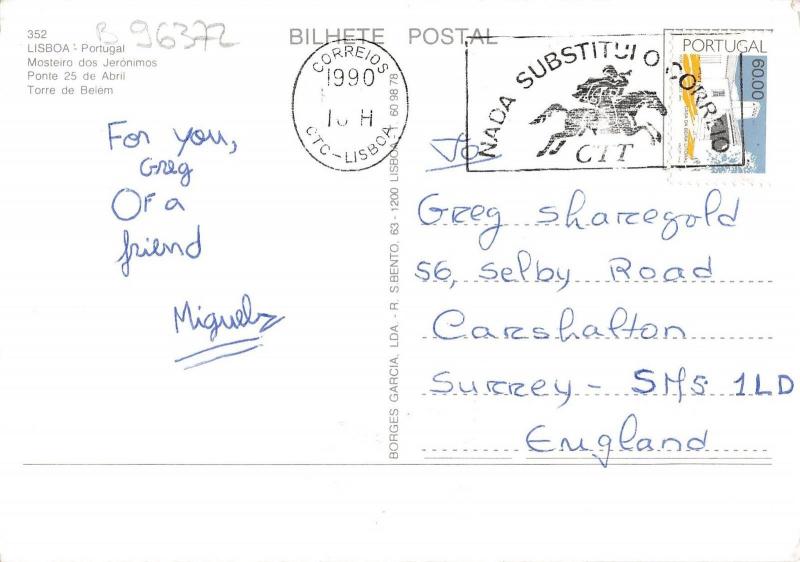 B 96372
352
LISBOA - Portugal
Mosteiro dos Jerónimos
Ponte 25 de Abril
Torre de Belém
BILHETE POSTAL
CORREIOS
1990
10 H
CTC - LISBOA
NADA SUBSTITUI O CORREIO
CTT
PORTUGAL
60.00
For you,
Greg
OF a
friend
Miguel
BORGES GARCIA, LDA. - R. S.BENTO, 63 - 1200 LISBOA - T. 60 98 78
To
Greg Sharegold
56, Selby Road
Carshalton
Surrey - SM5 1LD
England